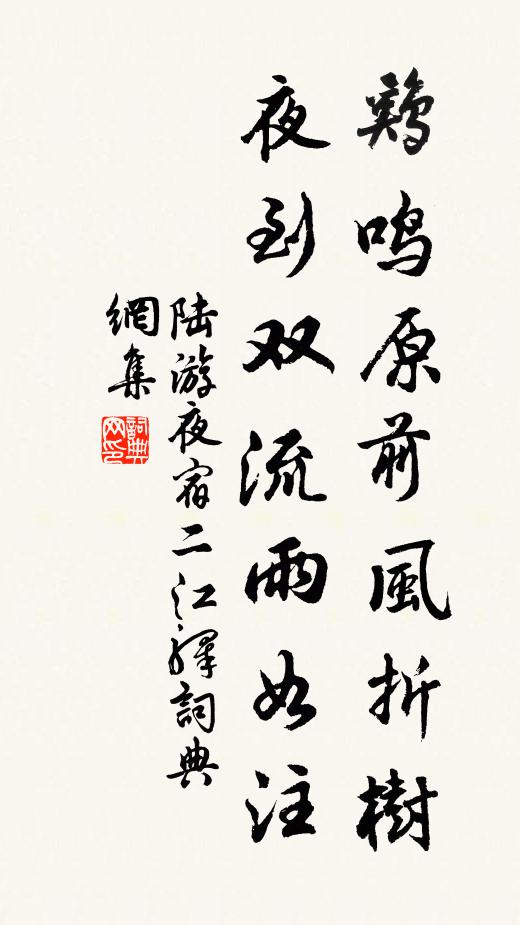 鷄鳴原前風折樹
夜到双流雨如注
陆游夜宿二江驛詞典
網集
詞典
网印